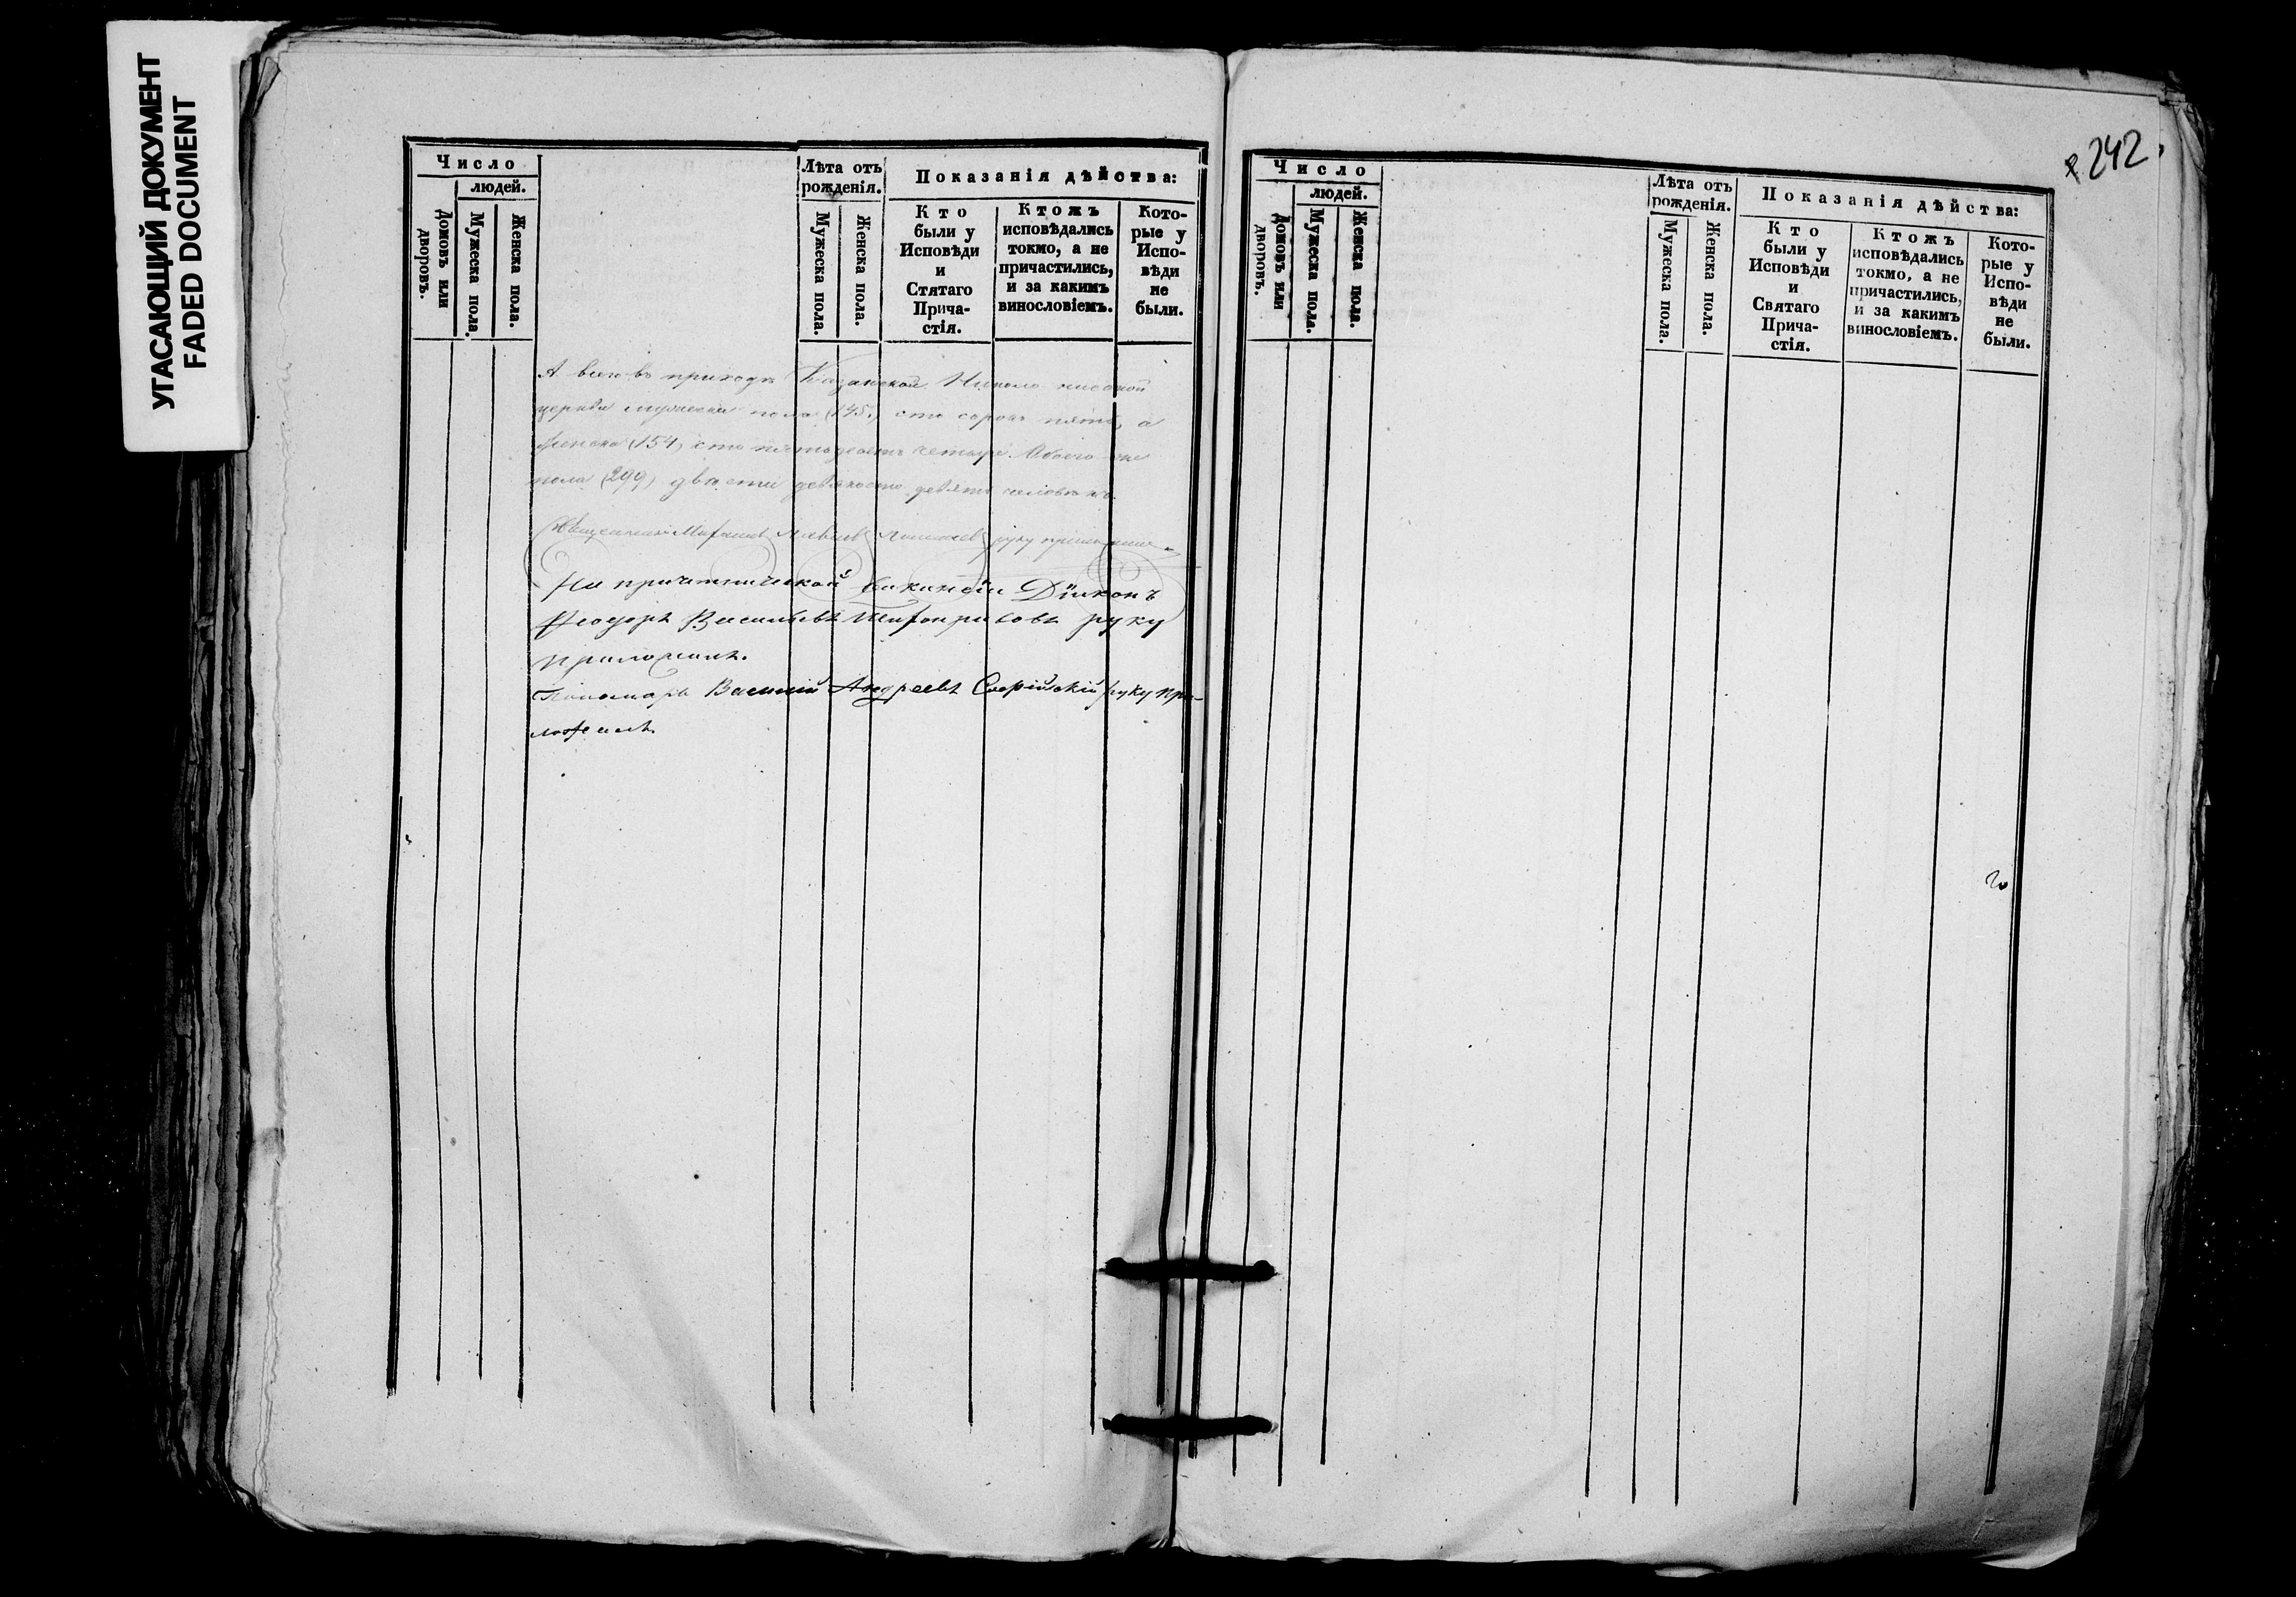 УГАСАЮЩИЙ ДОКУМЕНТ
FADED DOCUMENT
Число
людей.
Домовъ или дворовъ.
Мужеска пола.
Женска пола.
Лѣта отъ
рожденія.
Мужеска пола.
Женска пола.
Показанія дѣйства:
Кто
были у
Исповѣди
и
Стятаго
Прича-
стія.
Ктожъ
исповѣдались
токмо, а не
причастились,
и за какимъ
винословіемъ.
Кото-
рые у
Испо-
вѣди
не
были.
А всего въ приходѣ Казанской
церкви мужеска пола (145) сто сорокъ пять, а
женска (154) сто пятьдесятъ четыре. Обоего же
пола (299) двѣсти девяносто девять человѣкъ.
Священникъ руку приложилъ
На причетнической вакансіи Діаконъ
Ѳеодоръ Васильевъ руку
приложилъ.
Пономарь Василій Андреевъ Софійскій руку при-
ложилъ.
242.
Число
людей.
Домовъ или дворовъ.
Мужеска пола.
Женска пола.
Лѣта отъ
рожденія.
Мужеска пола.
Женска пола.
Показанія дѣйства:
Кто
были у
Исповѣди
и
Святаго
Прича-
стія.
Ктожъ
исповѣдались
токмо, а не
причастились,
и за какимъ
винословіемъ.
Кото-
рые у
Испо-
вѣди
не
были.